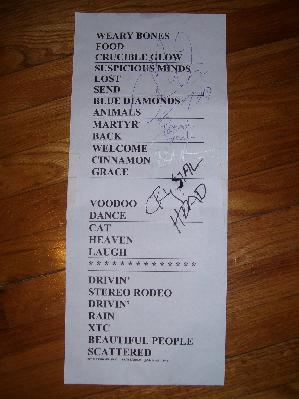 WEARY BONES
FOOD
CRUCIBLE GLOW
SUSPICIOUS MINDS
LOST
SEND
BLUE DIAMONDS
ANIMALS
MARTYR
BACK
WELCOME
CINNAMON
GRACE
CRYSTAL
HEAD
VOODOO
DANCE
CAT
HEAVEN
LAUGH
* * * * * * * * * * * * *
DRIVIN'
STEREO RODEO
DRIVIN'
RAIN
XTC
BEAUTIFUL PEOPLE
SCATTERED